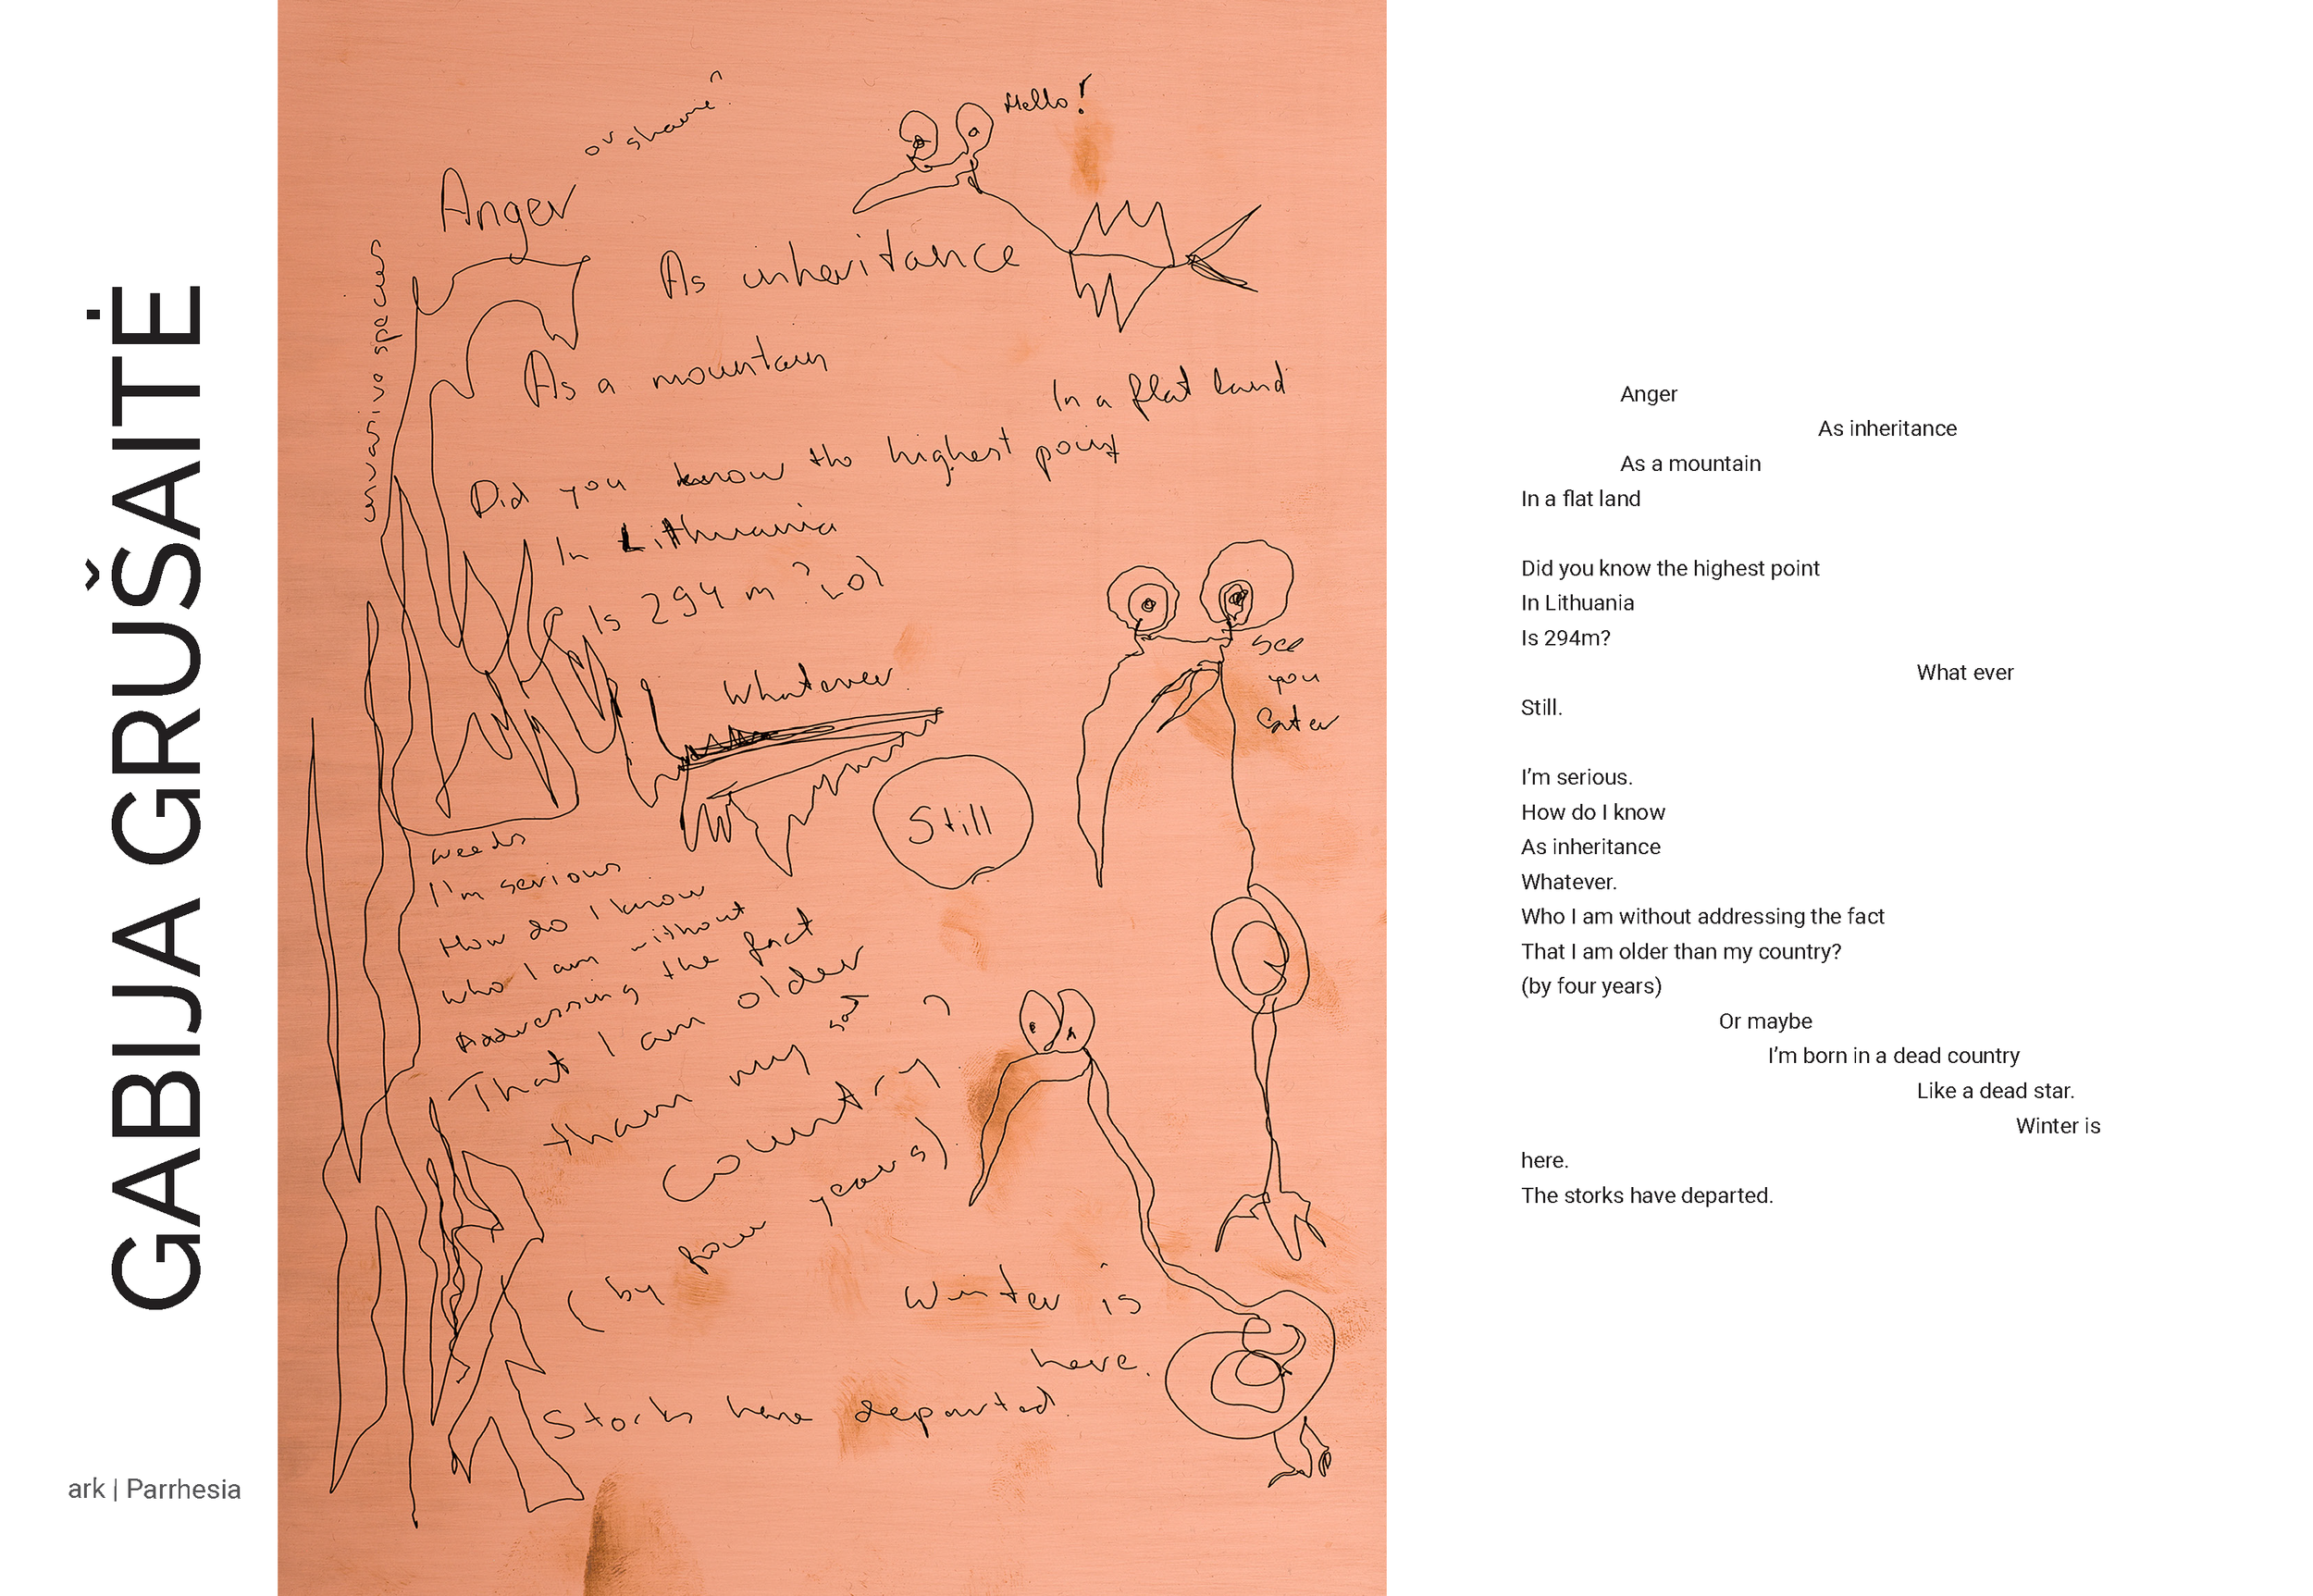 GABIJA GRUŠAITĖ
ark | Parrhesia
or shame?
Hello!
Anger
As inheritance
invasive species
As a mountain
In a flat land
Did you know the highest point
In Lithuania
Is 294 m? LOL
Whatever
see
you
later
Still
weeds
I'm serious
How do I know
who I am without
Addressing the fact
That I am older
than my sad
country?
(by four years)
Winter is
here.
Storks have departed.
Anger
As inheritance
As a mountain
In a flat land
Did you know the highest point
In Lithuania
Is 294m?
What ever
Still.
I’m serious.
How do I know
As inheritance
Whatever.
Who I am without addressing the fact
That I am older than my country?
(by four years)
Or maybe
I’m born in a dead country
Like a dead star.
Winter is
here.
The storks have departed.